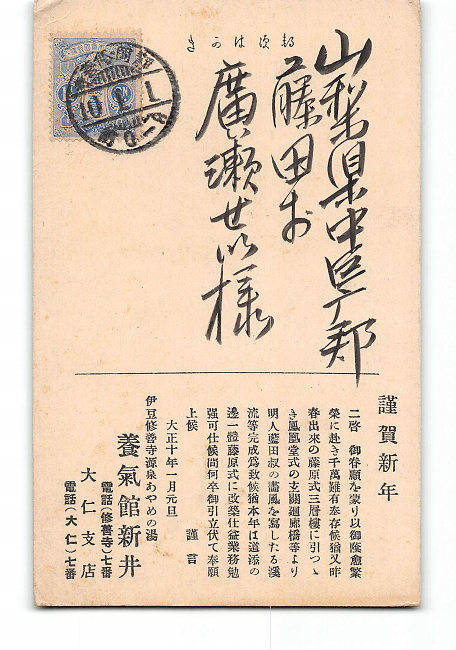 郵便はかき
10.1.1
山梨県中巨广郡
藤田村
廣瀬
様
謹賀新年
二啓 御眷顧を蒙り以御蔭愈繁
榮に赴き千萬難有奉存候猶又昨
春出來の藤原式三層樓に引つゝ
き鳳凰堂式の玄關廻廊橋等より
明人藍田叔の畵風を寫したる溪
流等完成爲致候猶本年は道添の
邊一體藤原式に改築仕益業務勉
强可仕候間何卒御引立伏て奉願
上候 謹言
大正十年一月元旦
伊豆修善寺源泉あやめの湯
養氣館新井
電話(修善寺)七番
大仁支店
電話(大仁)七番